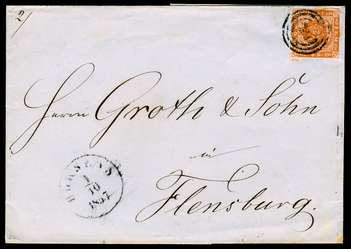 2
Herrn Groth & Sohn
in
Flensburg.
HORSENS
1
10
1857